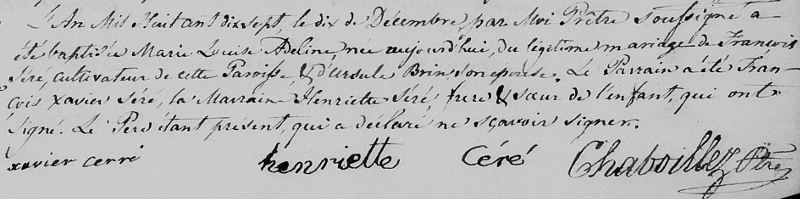 L'An Mil Huit Cent dix sept le dix de Décembre, par Moi Prêtre Soussigné a
été baptisée Marie Louise Adeline née aujourd'hui, du légitime mariage de François
Séré, cultivateur de cette Paroisse & d'Ursule Brin son epouse. Le Parrain a été Fran-
cois xavier Séré, la Marraine Henriette Séré, frere & sœur de l'enfant, qui ont
signé. Le Pere étant présent, qui a déclaré ne sçavoir signer.
xavier cerré henriette Céré Chaboillez Ptre